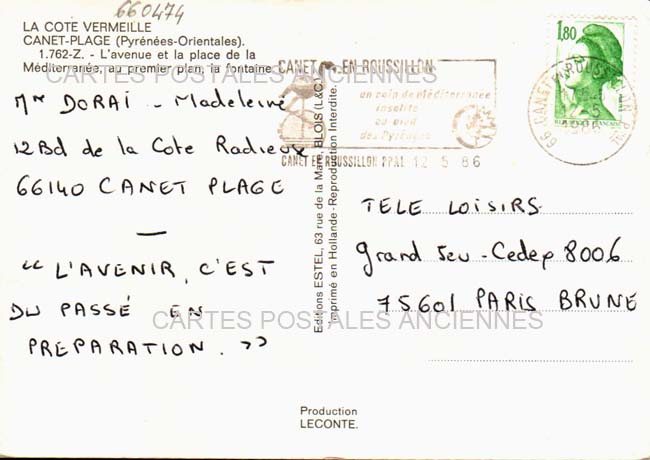 660474
LA COTE VERMEILLE
CANET-PLAGE (Pyrénées-Orientales).
1.762-Z. - L'avenue et la place de la
Méditerranée, au premier plan, la fontaine
CARTES POSTALES ANCIENNES
Mme DORAI - Madeleine
12 Bd de la Cote Radieux
66140 CANET PLAGE
"L'AVENIR, C'EST
DU PASSÉ EN
PREPARATION."
CANET EN ROUSSILLON
un coin de Méditerranée
insolite
au pied
des Pyrénées
CANET EN ROUSSILLON PPAL 12 5 86
1,80
Editions ESTEL, 63 rue de la Mare, BLOIS (L&C)
Imprimé en Hollande-Reproduction Interdite.
TELE LOISIRS
Grand Jeu - Cedex 8006
75601 PARIS BRUNE
CARTES POSTALES ANCIENNES
Production
LECONTE.